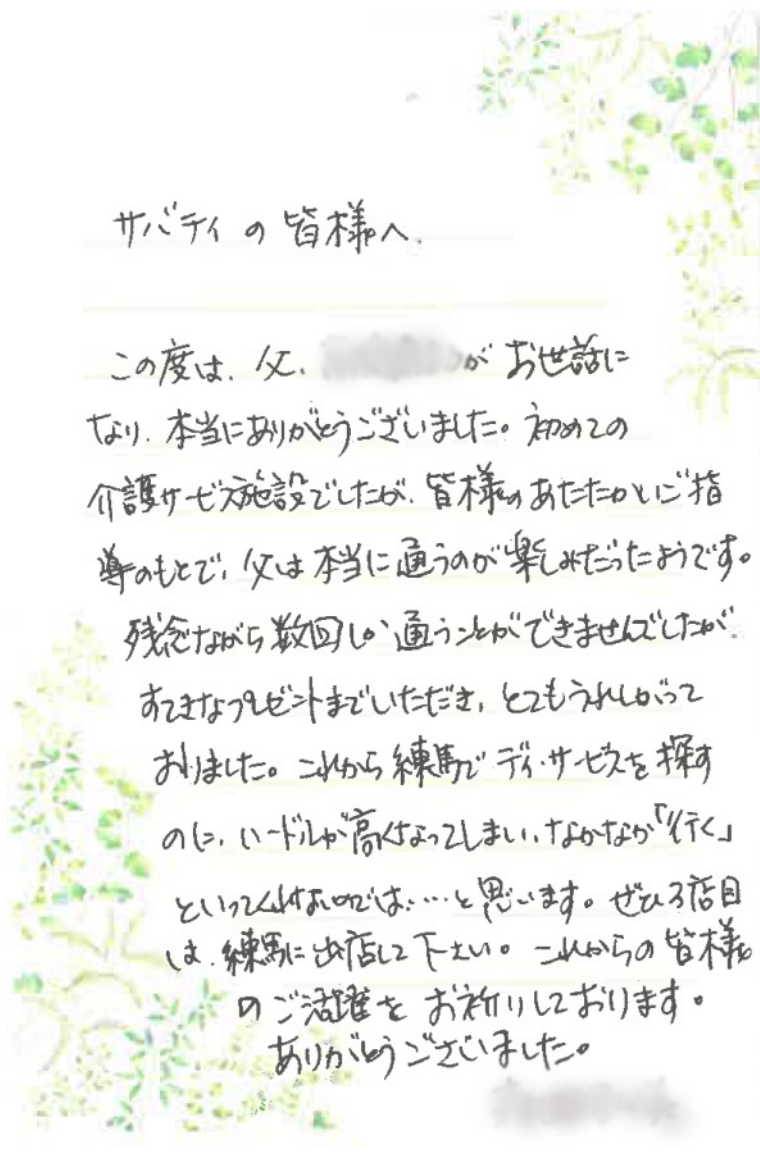 サバティの皆様へ.
この度は、父、が お世話に
なり、本当にありがとうございました。初めての
介護サービス施設でしたが、皆様のあたたかいご指
導のもとで、父は本当に通うのが楽しみだったようです。
残念ながら数回しか通うことができませんでしたが、
すてきなプレゼントまでいただき、とてもうれしがって
おりました。これから練馬でディ・サービスを探す
のに、ハードルが高くなってしまい、なかなか「行く」
といってくれないのでは……と思います。ぜひ3店目
は、練馬に出店して下さい。これからの皆様
のご活躍をお祈りしております。
ありがとうございました。